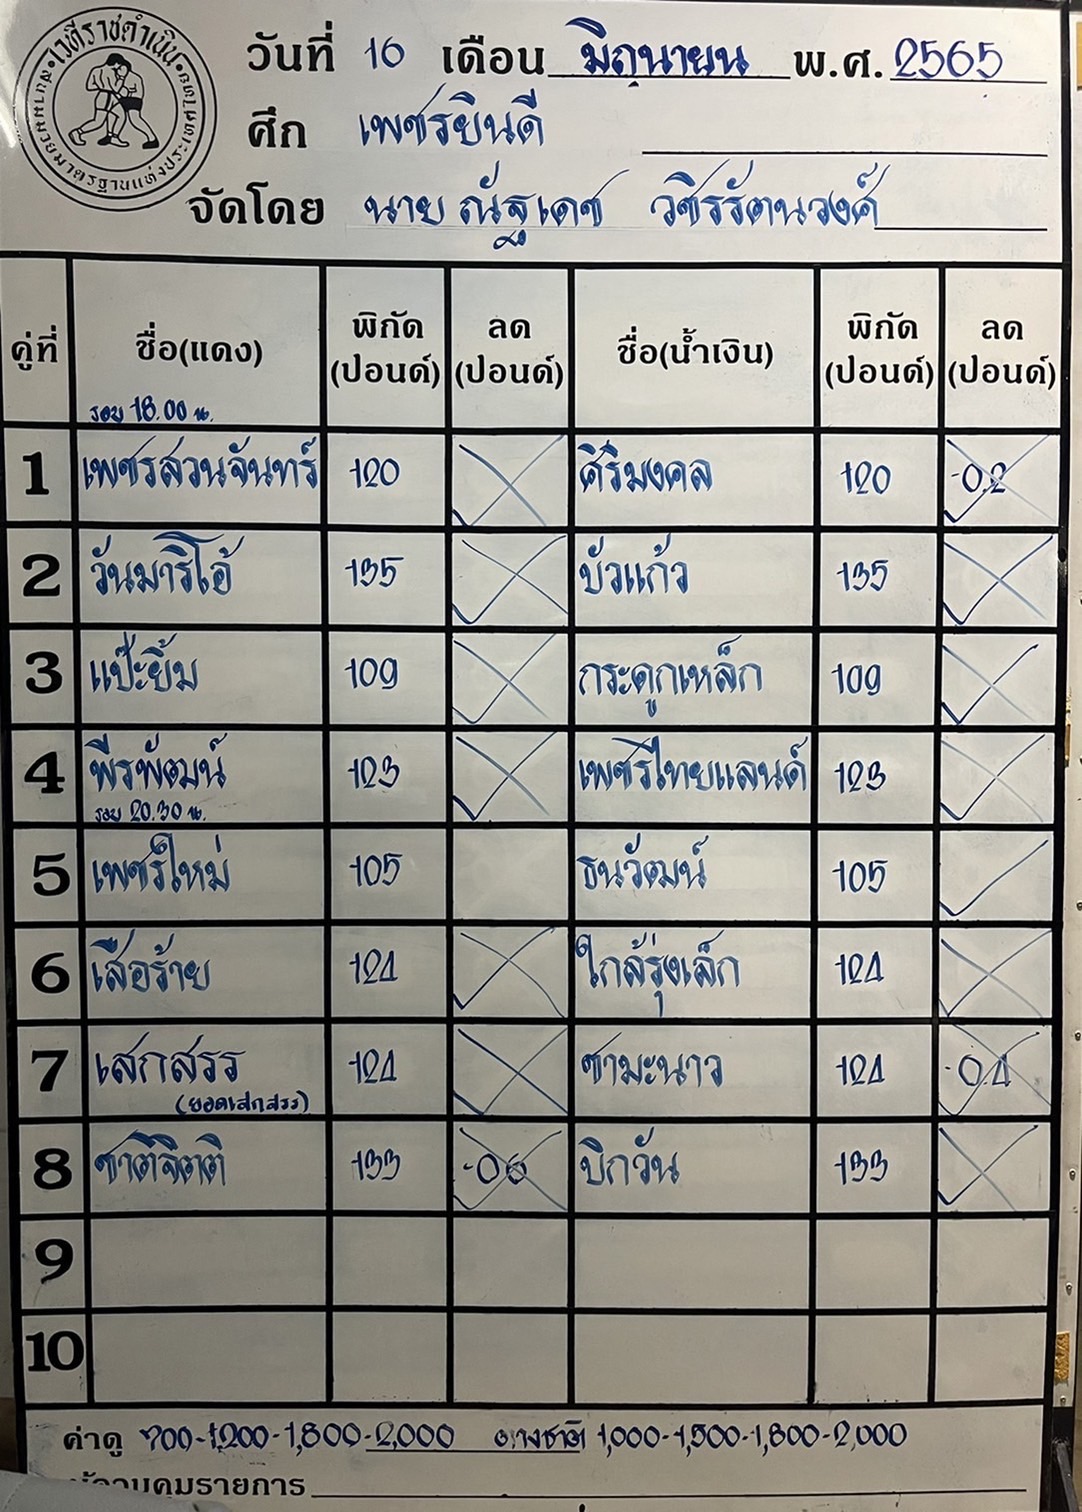 เวทีราชดำเนิน
สนามมวยมาตรฐานแห่งประเทศไทย
วันที่ 16 เดือน มิถุนายน พ.ศ. 2565
ศึก เพชรยินดี
จัดโดย นาย ณัฐเดช วชิรรัตนวงค์
คู่ที่ ชื่อ(แดง) พิกัด (ปอนด์) ลด (ปอนด์) ชื่อ(น้ำเงิน) พิกัด (ปอนด์) ลด (ปอนด์)
รอบ 18.00 น.
1 เพชรสวนจันทร์ 120 ศิริมงคล 120 -0.2
2 วันมาริโอ้ 135 บัวแก้ว 135
3 แป๊ะยิ้ม 109 กระดูกเหล็ก 109
4 พีรพัฒน์ 123 เพชรไทยแลนด์ 123
รอบ 20.30 น.
5 เพชรใหม่ 105 ธนวัฒน์ 105
6 เสือร้าย 124 ใกล้รุ่งเล็ก 124
7 เสกสรร 124 ชามะนาว 124 -0.4
(ยอดเสกสรร)
8 ชาติจิตติ 133 -0.6 บิกวัน 133
9
10
ค่าดู 700-1,200-1,800-2,000 ต่างชาติ 1,000-1,500-1,800-2,000
ผู้ควบคุมรายการ